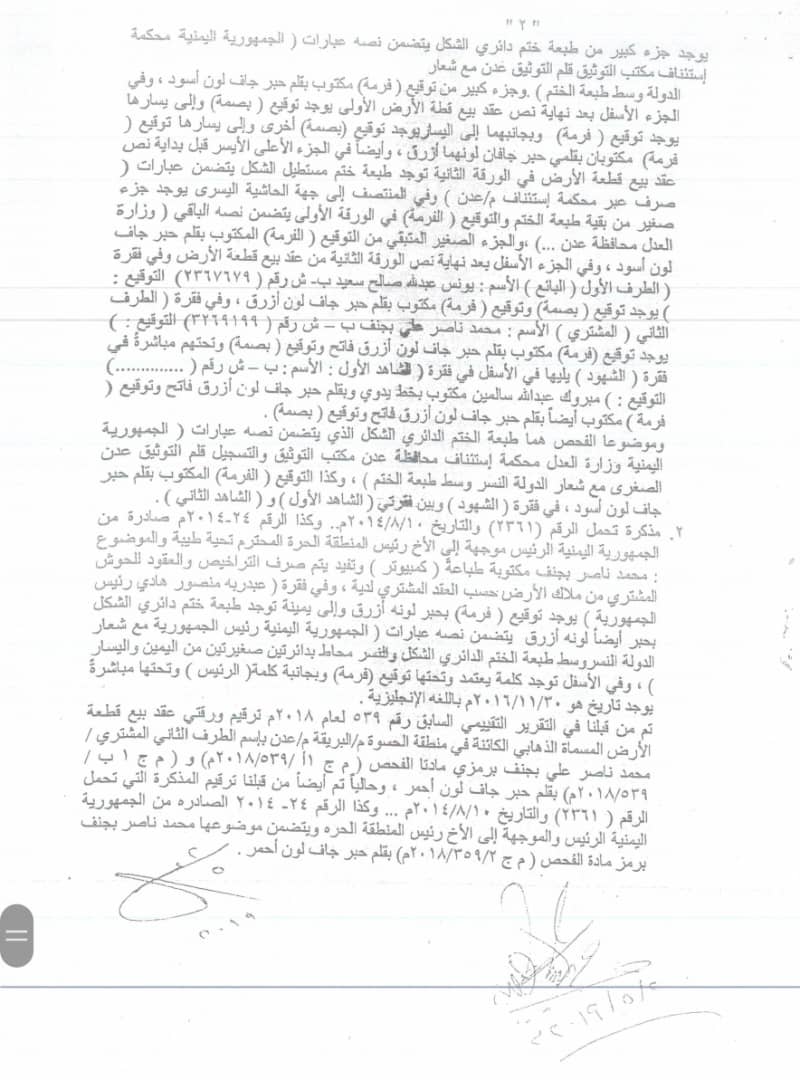 " ٢ "
يوجد جزء كبير من طبعة ختم دائري الشكل يتضمن نصه عبارات ( الجمهورية اليمنية محكمة
إستئناف مكتب التوثيق قلم التوثيق عدن مع شعار
الدولة وسط طبعة الختم ) .وجزء كبير من توقيع ( فرمة) مكتوب بقلم حبر جاف لون أسود ، وفي
الجزء الأسفل بعد نهاية نص عقد بيع قطة الأرض الأولى يوجد توقيع ( بصمة) وإلى يسارها
يوجد توقيع ( فرمة) وبجانبهما إلى اليساريوجد توقيع (بصمة) أخرى وإلى يسارها توقيع (
فرمة) مكتوبان بقلمي حبر جافان لونهما أزرق ، وأيضاً في الجزء الأعلى الأيسر قبل بداية نص
عقد بيع قطعة الأرض في الورقة الثانية توجد طبعة ختم مستطيل الشكل يتضمن عبارات (
صرف عبر محكمة إستئناف م/عدن ) وفي المنتصف إلى جهة الحاشية اليسرى يوجد جزء
صغير من بقية طبعة الختم والتوقيع ( الفرمة) في الورقة الأولى يتضمن نصه الباقي ( وزارة
العدل محافظة عدن ...) ،والجزء الصغير المتبقي من التوقيع ( الفرمة) المكتوب بقلم حبر جاف
لون أسود ، وفي الجزء الأسفل بعد نهاية نص الورقة الثانية من عقد بيع قطعة الأرض وفي فقرة
( الطرف الأول ( البائع ) الأسم : يونس عبدالله صالح سعيد ب- ش رقم ( ٢٣٦٧٦٧٩) التوقيع :
) يوجد توقيع ( بصمة) وتوقيع ( فرمة) مكتوب بقلم حبر جاف لون أزرق ، وفي فقرة ( الطرف
الثاني ( المشتري ) الأسم : محمد ناصر علي بجنف ب – ش رقم ( ٣٢٦٩١٩٩) التوقيع : )
يوجد توقيع (فرمة) مكتوب بقلم حبر جاف لون أزرق فاتح وتوقيع ( بصمة) وتحتهم مباشرةً في
فقرة ( الشهود ) يليها في الأسفل في فقرة ( الشاهد الأول : الأسم : ب – ش رقم ( .............)
التوقيع : ) مبروك عبدالله سالمين مكتوب بخط يدوي وبقلم حبر جاف لون أزرق فاتح وتوقيع (
فرمة ) مكتوب أيضاً بقلم حبر جاف لون أزرق فاتح وتوقيع ( بصمة) .
وموضوعا الفحص هما طبعة الختم الدائري الشكل الذي يتضمن نصه عبارات ( الجمهورية
اليمنية وزارة العدل محكمة إستئناف محافظة عدن مكتب التوثيق والتسجيل قلم التوثيق عدن
الصغرى مع شعار الدولة النسر وسط طبعة الختم ) ، وكذا التوقيع ( الفرمة) المكتوب بقلم حبر
جاف لون أسود ، في فقرة ( الشهود ) وبين فقرتي ( الشاهد الأول ) و ( الشاهد الثاني ) .
٢. مذكرة تحمل الرقم (٢٣٦١) والتاريخ ٢٠١٤/٨/١٠م.. وكذا الرقم ٢٤-٢٠١٤م صادرة من
الجمهورية اليمنية الرئيس موجهة إلى الأخ رئيس المنطقة الحرة المحترم تحية طيبة والموضوع
: محمد ناصر بجنف مكتوبة طباعة ( كمبيوتر ) وتفيد يتم صرف التراخيص والعقود للحوش
المشتري من ملاك الأرض حسب العقد المشتري لدية ، وفي فقرة ( عبدربه منصور هادي رئيس
الجمهورية ) يوجد توقيع ( فرمة) بحبر لونه أزرق وإلى يمينة توجد طبعة ختم دائري الشكل
بحبر أيضاً لونه أزرق يتضمن نصه عبارات ( الجمهورية اليمنية رئيس الجمهورية مع شعار
الدولة النسروسط طبعة الختم الدائري الشكل والنسر محاط بدائرتين صغيرتين من اليمين واليسار
) ، وفي الأسفل توجد كلمة يعتمد وتحتها توقيع (فرمة) وبجانبة كلمة( الرئيس ) وتحتها مباشرةً
يوجد تاريخ هو ٢٠١٦/١١/٣٠م باللغه الإنجليزية .
تم من قبلنا في التقرير التقييمي السابق رقم ٥٣٩ لعام ٢٠١٨م ترقيم ورقتي عقد بيع قطعة
الأرض المسماة الذهابي الكائنة في منطقة الحسوة م/البريقة م/عدن بإسم الطرف الثاني المشتري /
محمد ناصر علي بجنف برمزي مادتا الفحص ( م ج ١أ /٢٠١٨/٥٣٩م) و ( م ج ١ ب /
٢٠١٨/٥٣٩م) بقلم حبر جاف لون أحمر ، وحالياً تم أيضاً من قبلنا ترقيم المذكرة التي تحمل
الرقم ( ٢٣٦١) والتاريخ ٢٠١٤/٨/١٠م ... وكذا الرقم ٢٤- ٢٠١٤ الصادره من الجمهورية
اليمنية الرئيس والموجهة إلى الأخ رئيس المنطقة الحره ويتضمن موضوعها محمد ناصر بجنف
برمز مادة الفحص ( م ج ٢٠١٨/٣٥٩/٢م) بقلم حبر جاف لون أحمر .
٢
٥
٢٠١٩
٢٠١٩/٥/٢م